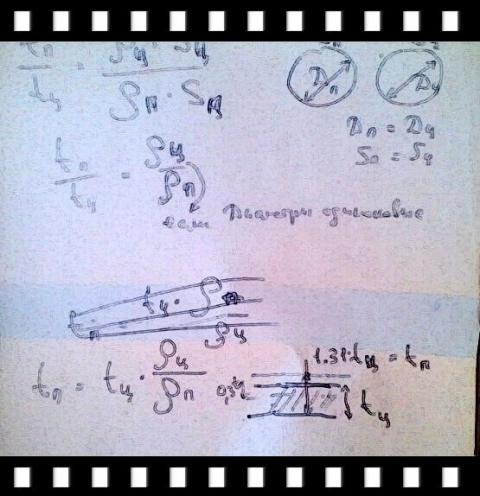 tп/tц = ρц · Sц / ρп · Sп
Dп Dц
Dп = Dц
Sп = Sц
tп/tц = ρц/ρп
если Диаметры одинаковые
tц · ρ
tп
ρц
1.31·tц = tп
tп = tц · ρц/ρп
0,31
tц